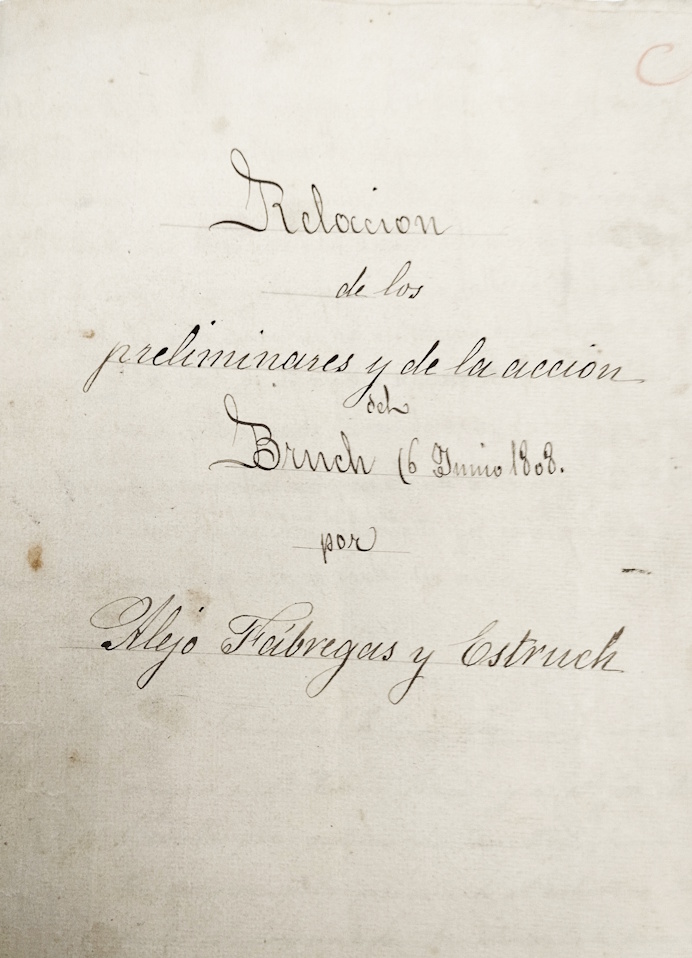 Relacion
de los
preliminares y de la accion
del
Bruch (6 Junio 1808.
por
Alejo Fábregas y Estruch
C